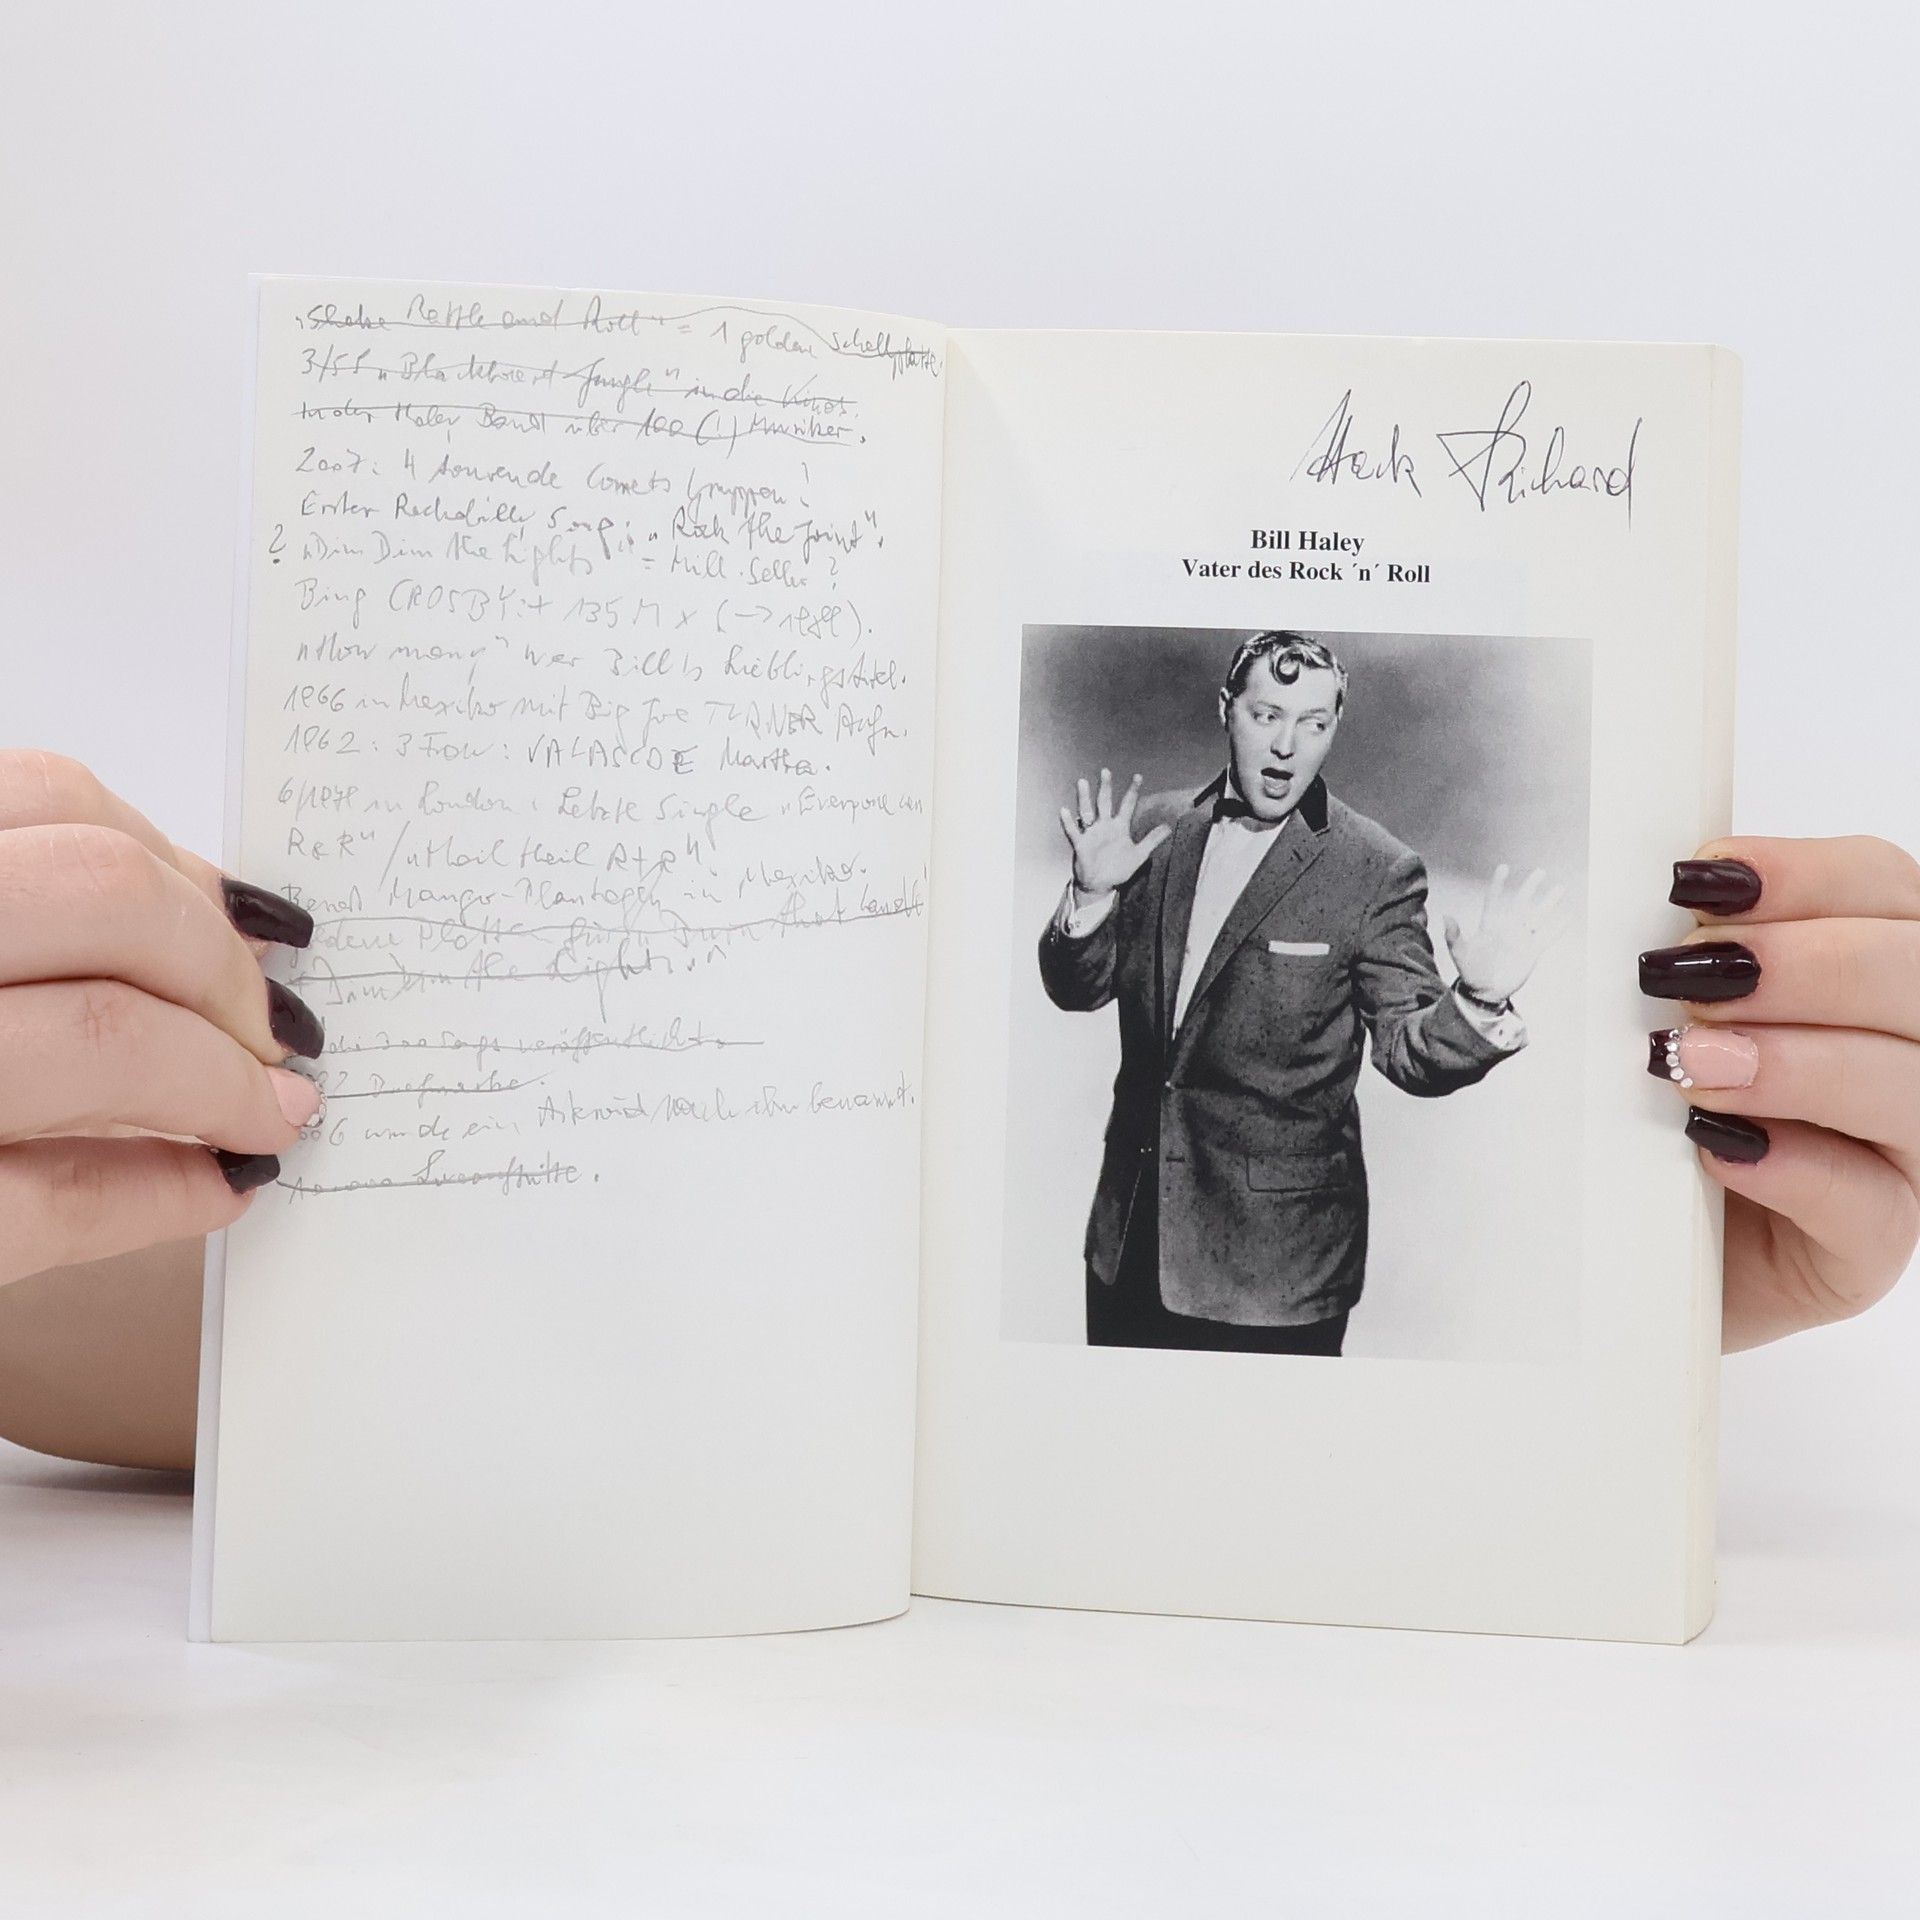 "Shake Rattle and Roll" = 1 goldene Schallplatte.
3/55 "Blackboard Jungle" in die Kinos.
In der Haley Band über 100 (!) Musiker.
2007: 4 tourende Comets Gruppen!
Erster Rockabilly Song: "Rock the Joint".
? "Dim Dim the Lights" = Mill. Seller?
Bing CROSBY: + 135 M x (→
"How many" war Bill's Lieblingstitel.
1966 in Mexiko mit Big Joe TURNER Aufn.
1962: 3 Frau: VALASCOE Martha.
in London: Letzte Single "Everyone can
R & R" / "Hail Hail R+R".
Mango-Plantagen in Mexiko.
Platten für
Dim the Lights".
Songs veröffentlicht.
Briefmarke.
6 wurde ein Asteroid nach ihm benannt.
Hack Richard
Bill Haley
Vater des Rock ´n´ Roll